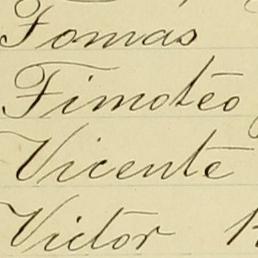 Tomas
Timotéo
Vicente
Victor